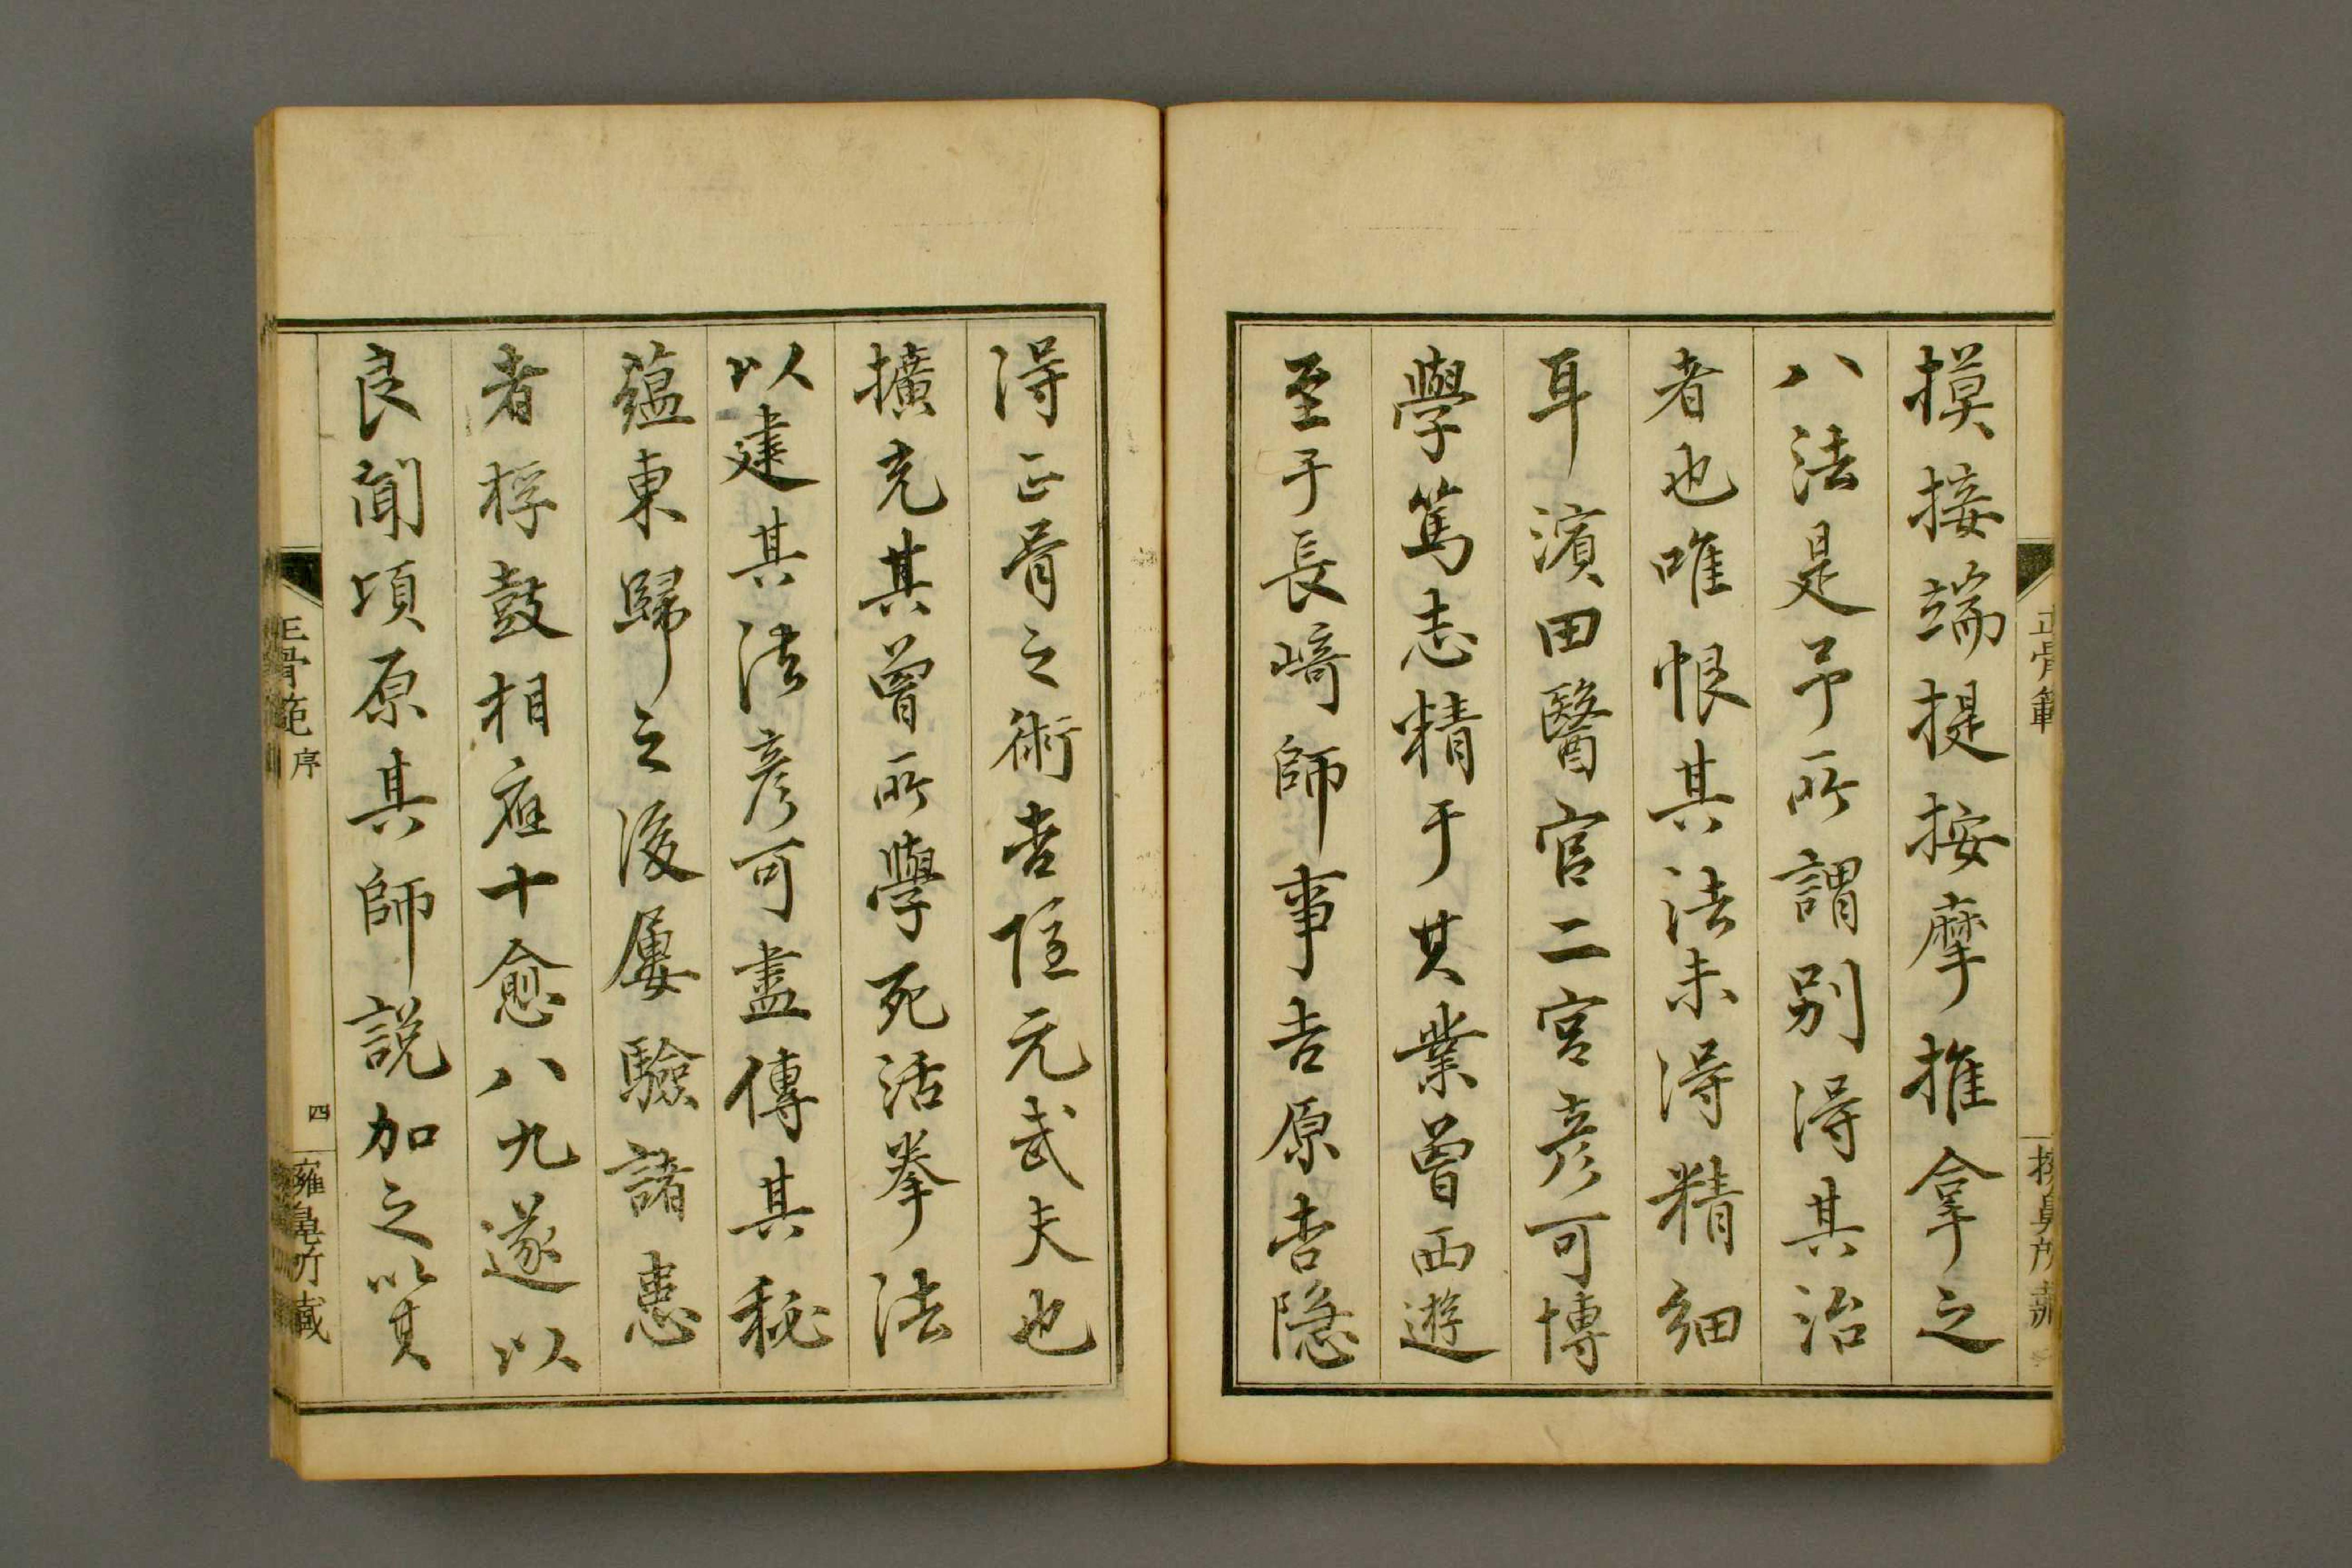 摸接端提按摩推拿之
八法是予所謂別得其治
者也唯恨其法未得精細
耳濱田醫官二宮彦可博
學篤志精于其業曽西遊
至于長﨑師事吉原杏隠
得正骨之術杏隠元武夫也
擴充其曽所學死活拳法
以建其法彦可盡傳其秘
蘊東歸之後屢驗諸患
者桴鼓相應十愈八九遂以
良閒項原其師説加之以其
正骨範序
四